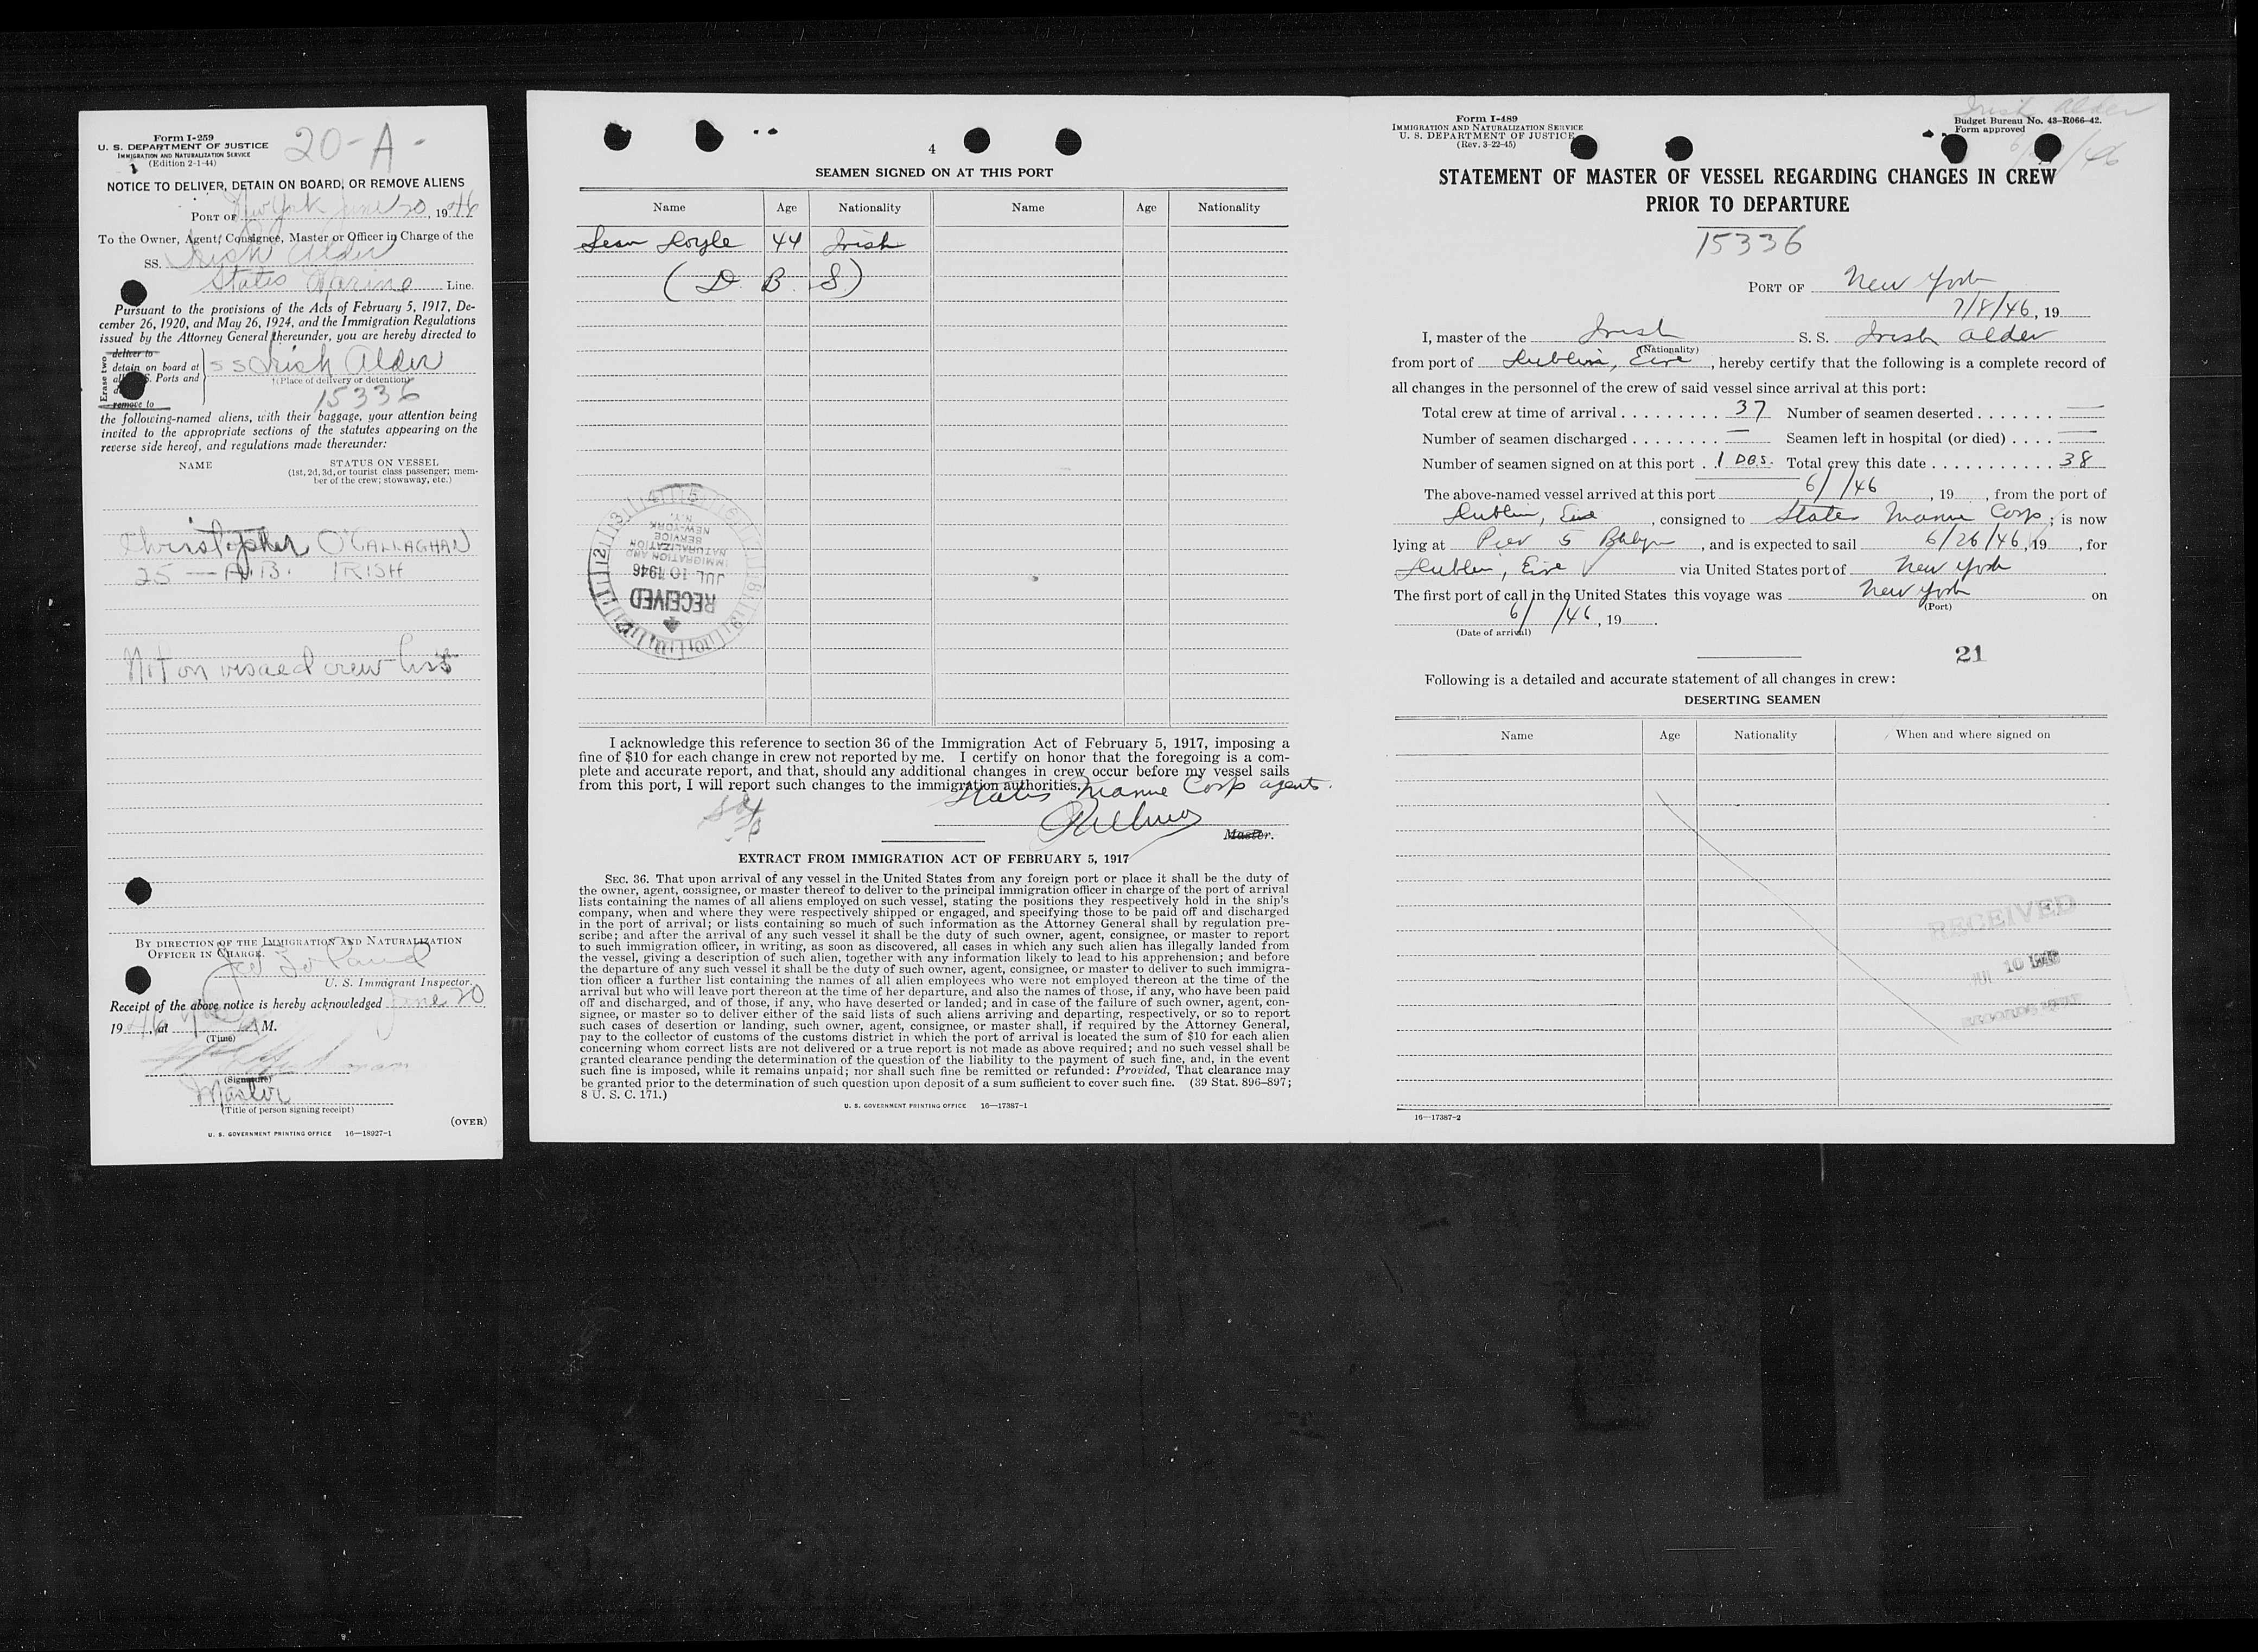 Form I-259
U. S. DEPARTMENT OF JUSTICE
IMMIGRATION AND NATURALIZATION SERVICE
(Edition 2-1-44)
20-A-
NOTICE TO DELIVER, DETAIN ON BOARD, OR REMOVE ALIENS
PORT OF New York June 20, 1946
To the Owner, Agent, Consignee, Master or Officer in Charge of the
SS. Irish Alder
States Marine Line.
Pursuant to the provisions of the Acts of February 5, 1917, De-
cember 26, 1920, and May 26, 1924, and the Immigration Regulations
issued by the Attorney General thereunder, you are hereby directed to
Erase two
deliver to
detain on board at
S. Ports and
remove to
SS Irish Alder
(Place of delivery or detention)
15336
the following-named aliens, with their baggage, your attention being
invited to the appropriate sections of the statutes appearing on the
reverse side hereof, and regulations made thereunder:
NAME
STATUS ON VESSEL
(1st, 2d, 3d, or tourist class passenger; mem-
ber of the crew; stowaway, etc.)
Christopher O'CALLAGHAN
25 — A.B. IRISH
Not on visaed crew list
BY DIRECTION OF THE IMMIGRATION AND NATURALIZATION
OFFICER IN CHARGE.
U. S. Immigrant Inspector.
Receipt of the above notice is hereby acknowledged June 20
1946 at M.
(Time)
(Signature)
Master
(Title of person signing receipt)
(OVER)
U. S. GOVERNMENT PRINTING OFFICE 16—18927-1
4
SEAMEN SIGNED ON AT THIS PORT
Name Age Nationality Name Age Nationality
Sean Doyle 44 Irish
(D B S)
IMMIGRATION AND
NATURALIZATION
SERVICE
NEW-YORK
N.Y.
JUL 10 1946
RECEIVED
I acknowledge this reference to section 36 of the Immigration Act of February 5, 1917, imposing a
fine of $10 for each change in crew not reported by me. I certify on honor that the foregoing is a com-
plete and accurate report, and that, should any additional changes in crew occur before my vessel sails
from this port, I will report such changes to the immigration authorities.
States Marine Corp agents.
Master.
EXTRACT FROM IMMIGRATION ACT OF FEBRUARY 5, 1917
SEC. 36. That upon arrival of any vessel in the United States from any foreign port or place it shall be the duty of
the owner, agent, consignee, or master thereof to deliver to the principal immigration officer in charge of the port of arrival
lists containing the names of all aliens employed on such vessel, stating the positions they respectively hold in the ship's
company, when and where they were respectively shipped or engaged, and specifying those to be paid off and discharged
in the port of arrival; or lists containing so much of such information as the Attorney General shall by regulation pre-
scribe; and after the arrival of any such vessel it shall be the duty of such owner, agent, consignee, or master to report
to such immigration officer, in writing, as soon as discovered, all cases in which any such alien has illegally landed from
the vessel, giving a description of such alien, together with any information likely to lead to his apprehension; and before
the departure of any such vessel it shall be the duty of such owner, agent, consignee, or master to deliver to such immigra-
tion officer a further list containing the names of all alien employees who were not employed thereon at the time of the
arrival but who will leave port thereon at the time of her departure, and also the names of those, if any, who have been paid
off and discharged, and of those, if any, who have deserted or landed; and in case of the failure of such owner, agent, con-
signee, or master so to deliver either of the said lists of such aliens arriving and departing, respectively, or so to report
such cases of desertion or landing, such owner, agent, consignee, or master shall, if required by the Attorney General,
pay to the collector of customs of the customs district in which the port of arrival is located the sum of $10 for each alien
concerning whom correct lists are not delivered or a true report is not made as above required; and no such vessel shall be
granted clearance pending the determination of the question of the liability to the payment of such fine, and, in the event
such fine is imposed, while it remains unpaid; nor shall such fine be remitted or refunded: Provided, That clearance may
be granted prior to the determination of such question upon deposit of a sum sufficient to cover such fine. (39 Stat. 896-897;
8 U. S. C. 171.)
U. S. GOVERNMENT PRINTING OFFICE 16—17387-1
Form I-489
IMMIGRATION AND NATURALIZATION SERVICE
U. S. DEPARTMENT OF JUSTICE
(Rev. 3-22-45)
Irish Alder
Budget Bureau No. 43-R066-42.
Form approved
STATEMENT OF MASTER OF VESSEL REGARDING CHANGES IN CREW
PRIOR TO DEPARTURE
15336
PORT OF New York
7/8/46, 19
I, master of the Irish S. S. Irish Alder
(Nationality)
from port of Dublin, Eire, hereby certify that the following is a complete record of
all changes in the personnel of the crew of said vessel since arrival at this port:
Total crew at time of arrival 37 Number of seamen deserted —
Number of seamen discharged — Seamen left in hospital (or died) —
Number of seamen signed on at this port 1 DBS. Total crew this date 38
The above-named vessel arrived at this port 6/ /46, 19, from the port of
Dublin, Eire, consigned to States Marine Corp; is now
lying at Pier 5 Bklyn, and is expected to sail 6/26/46, 19, for
Dublin, Eire via United States port of New York
The first port of call in the United States this voyage was New York on
(Port)
6/ /46, 19.
(Date of arrival)
21
Following is a detailed and accurate statement of all changes in crew:
DESERTING SEAMEN
Name Age Nationality When and where signed on
RECEIVED
10 1946
16—17387-2